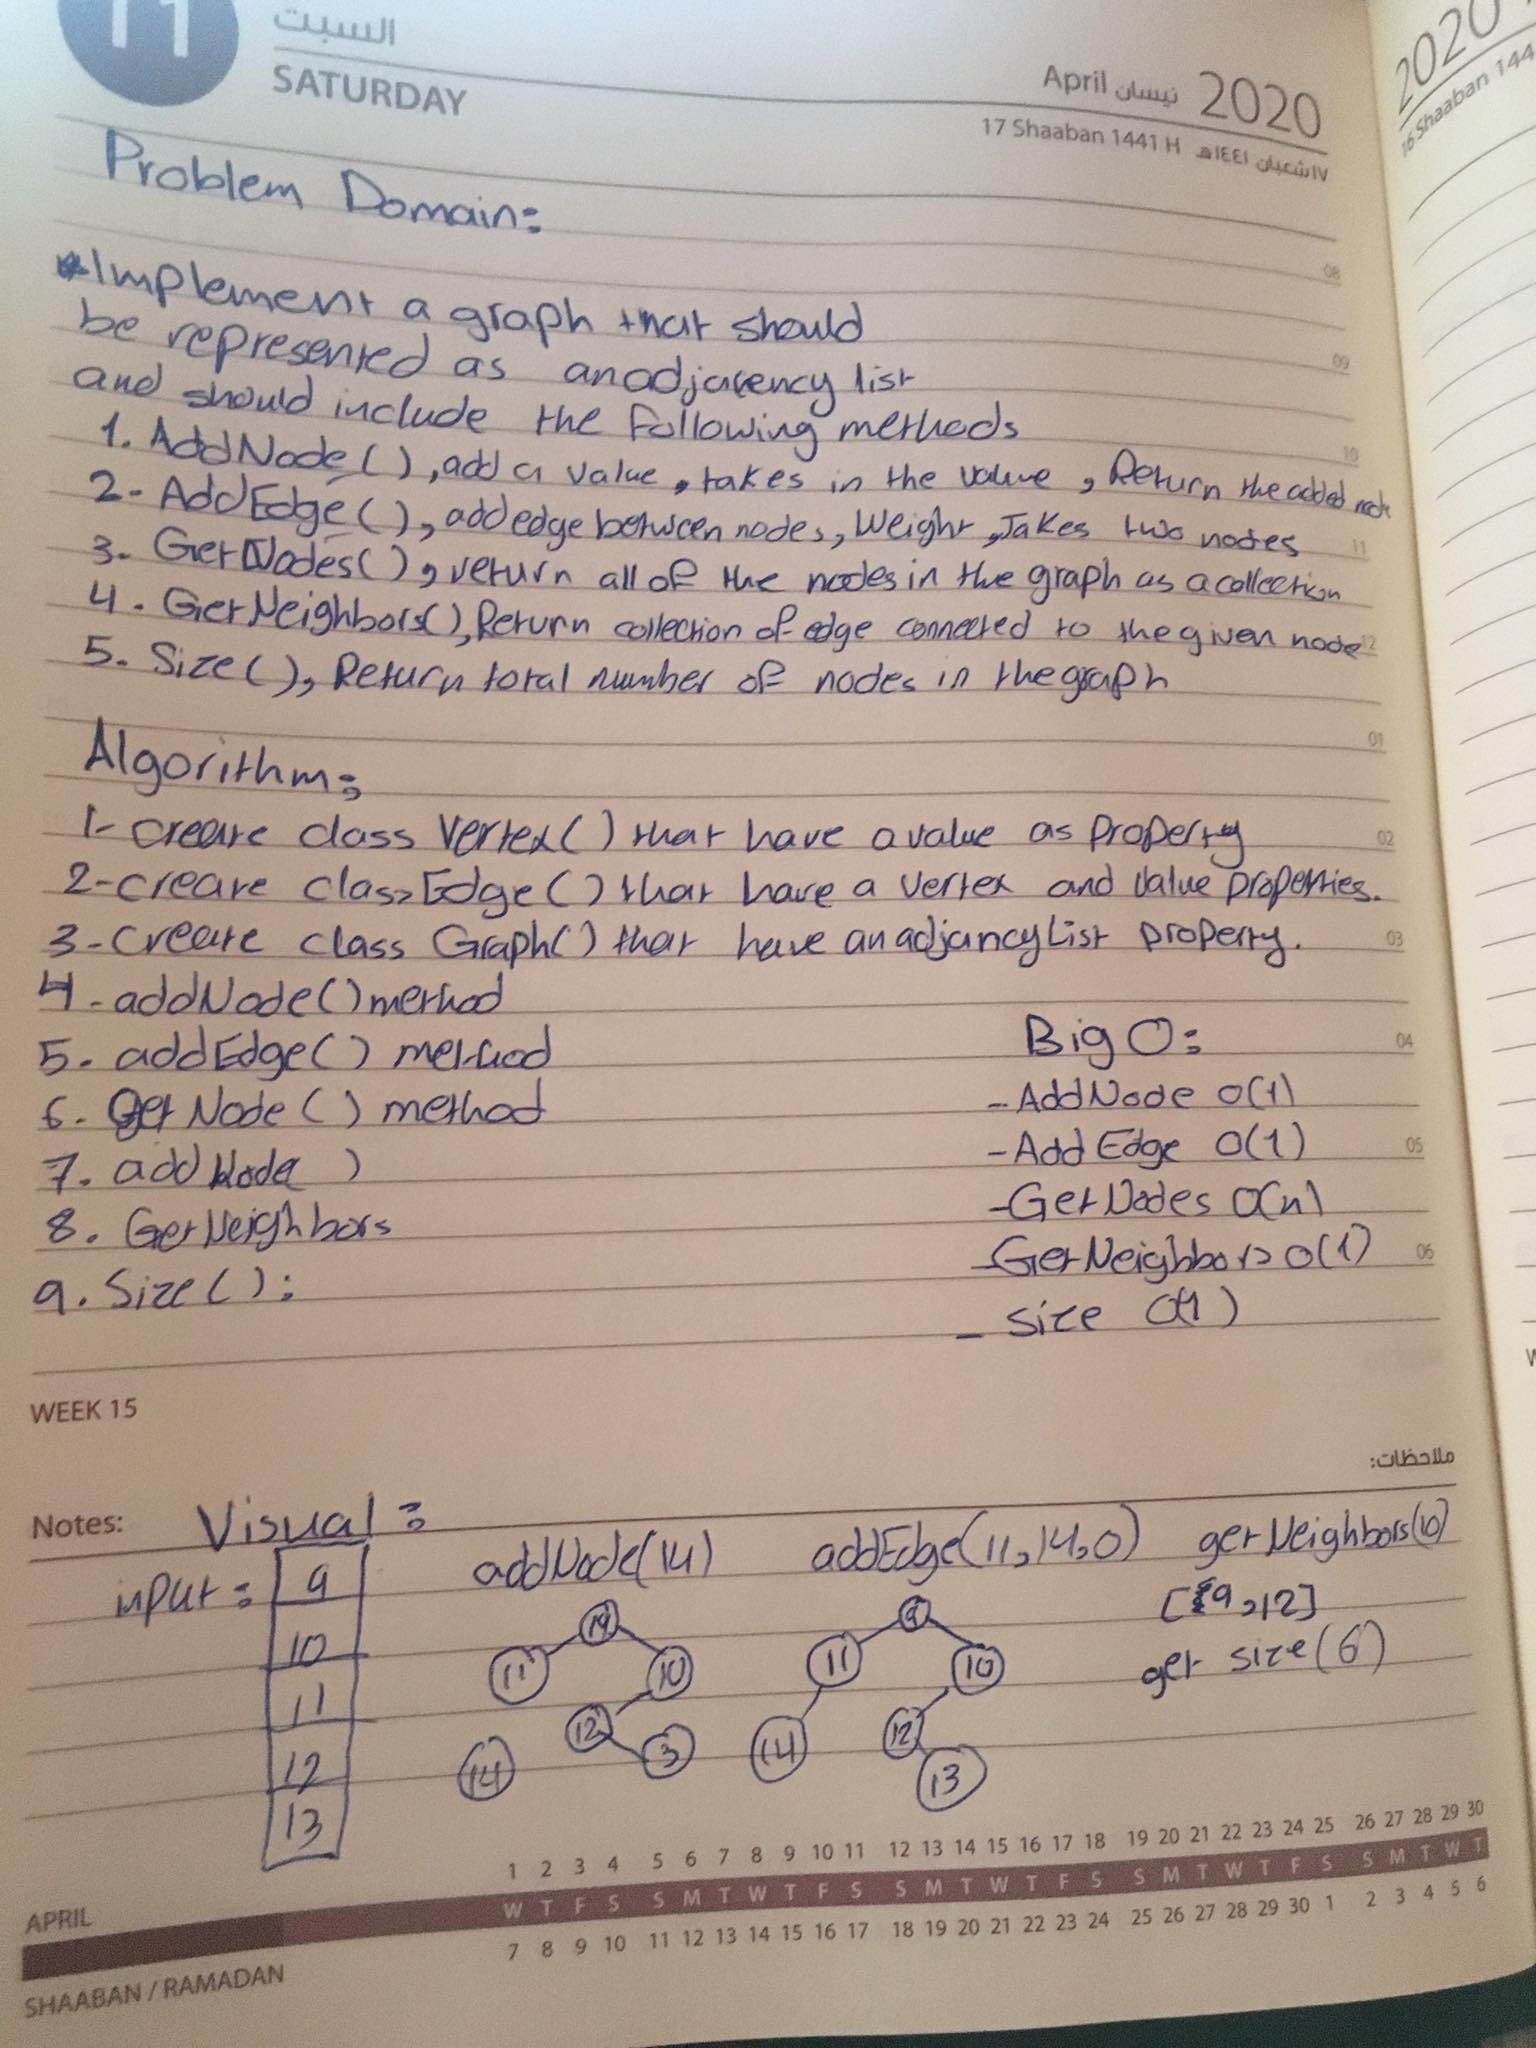 11
السبت
SATURDAY
April نيسان 2020
17 Shaaban 1441 H ١٧ شعبان ١٤٤١ هـ
2020
16 Shaaban 144
Problem Domain:
08
Implement a graph that should
be represented as an adjacency list
09
and should include the following methods
10
1. AddNode(), add a value, takes in the value, Return the added node
2- AddEdge(), add edge between nodes, Weight, Takes two nodes
11
3. GetNodes(), return all of the nodes in the graph as a collection
4. GetNeighbors(), Return collection of edge connected to the given node
12
5. Size(), Return total number of nodes in the graph
01
Algorithm:
1- create class Vertex() that have a value as property
02
2- create class Edge() that have a vertex and value properties.
3- Create class Graph() that have an adjancyList property.
03
4- addNode() method
5. addEdge() method
6. Get Node() method
7. add Node )
8. GetNeighbors
9. Size():
Big O:
04
- AddNode O(1)
- Add Edge O(1)
05
- GetNodes O(n)
- GetNeighbors O(1)
06
- size O(1)
WEEK 15
ملاحظات:
Notes:
Visual:
input:
9
10
11
12
13
addNode(14)
14
11
10
12
3
14
addEdge(11,14,0)
9
11
10
14
12
13
getNeighbors(10)
[9,12]
get size(6)
1 2 3 4 5 6 7 8 9 10 11 12 13 14 15 16 17 18 19 20 21 22 23 24 25 26 27 28 29 30
APRIL
W T F S S M T W T F S S M T W T F S S M T W T F S S M T W T
7 8 9 10 11 12 13 14 15 16 17 18 19 20 21 22 23 24 25 26 27 28 29 30 1 2 3 4 5 6
SHAABAN / RAMADAN